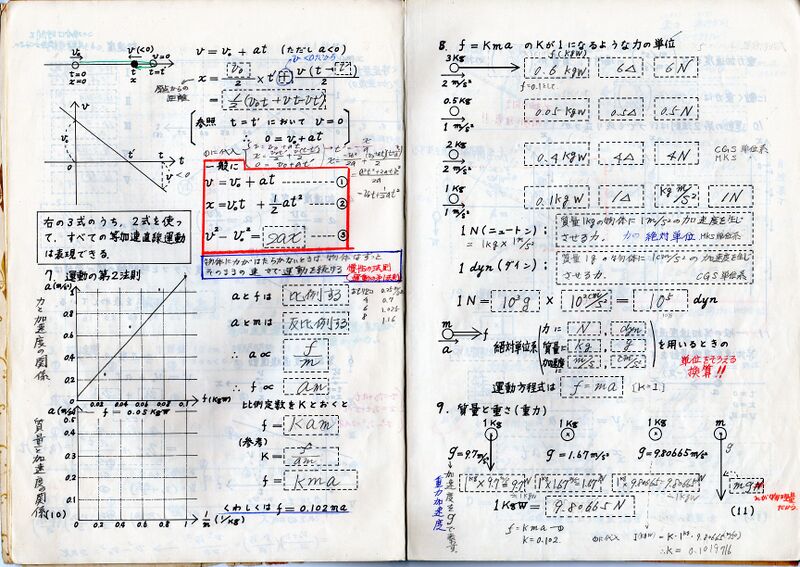 v(<0)
v=0
t=0
x=0
t
x
t=t'
v = v₀ + at (ただし a<0)
v<0だから
x = v₀/2 × t
原点からの
距離
参照 t = t' において v = 0
∴ 0 = v₀ + at
①に代入
v
v₀
t'
t
v<0
一般に
v = v₀ + at ①
x = v₀t + 1/2 at² ②
v² - v₀² = 2ax ③
右の3式のうち、2式を使っ
て、すべての等加速直線運動
は表現できる。
物体に力がはたらかないときは 物体はずっと
そのままの速さで運動を続ける
慣性の法則
7. 運動の第2法則
力と加速度の関係
a(m/s²)
1
0.8
0.6
0.4
0.2
0
0.02 0.04 0.06 0.08 0.1
f(Kgw)
aとfは 比例する
aとmは 反比例する
∴ a ∝ f/m
∴ f ∝ am
比例定数をKとおくと
f = Kam
(参考)
K = f/am
f = Kma
くわしくは f = 0.102ma
質量と加速度の関係
a(m/s²)
f = 0.05 Kgw
0.5
0.4
0.3
0.2
0.1
0
0.2 0.4 0.6 0.8 1
1/m (1/Kg)
(10)
8. f = Kma のKが1になるような力の単位
f(Kgw)
3Kg
2 m/s²
0.6 kgw 6△ 6N
0.5Kg
1 m/s²
0.05 kgw 0.5△ 0.5N
2Kg
2 m/s²
0.4 kgw 4△ 4N
CGS単位系
MKS
1Kg
1 m/s²
0.1kgw 1△ kg m/s² 1N
1N(ニュートン): 質量1kgの物体に1m/s²の加速度を生じ
= 1kg × 1m/s²
させる力. 力の絶対単位 MKS単位系
1 dyn(ダイン): 質量1gの物体に1cm/s²の加速度を生じ
させる力. CGS単位系
1N = 10³g × 10²cm/s² = 10⁵ dyn
m
f
a
絶対単位系
力に N dyn
質量に kg g
加速度に m/s² cm/s²
を用いるときの
単位をそろえる
換算!!
運動方程式は f = ma [K=1]
9. 質量と重さ(重力)
1Kg 1Kg 1Kg m
g=9.7m/s² g=1.67m/s² g=9.80665m/s² g
1kg×9.7m/s²=9.7N 1kg×1.67m/s²=1.67N 1kg×9.80665=9.80665N mgN
=1kgw
加速度をgで表す。
重力加速度
1Kgw = 9.80665N
f = kma ―①
K = 0.102
①に代入 1(kgw) = K・1kg・9.80665(m/s²)
∴K = 0.1019716
(11)